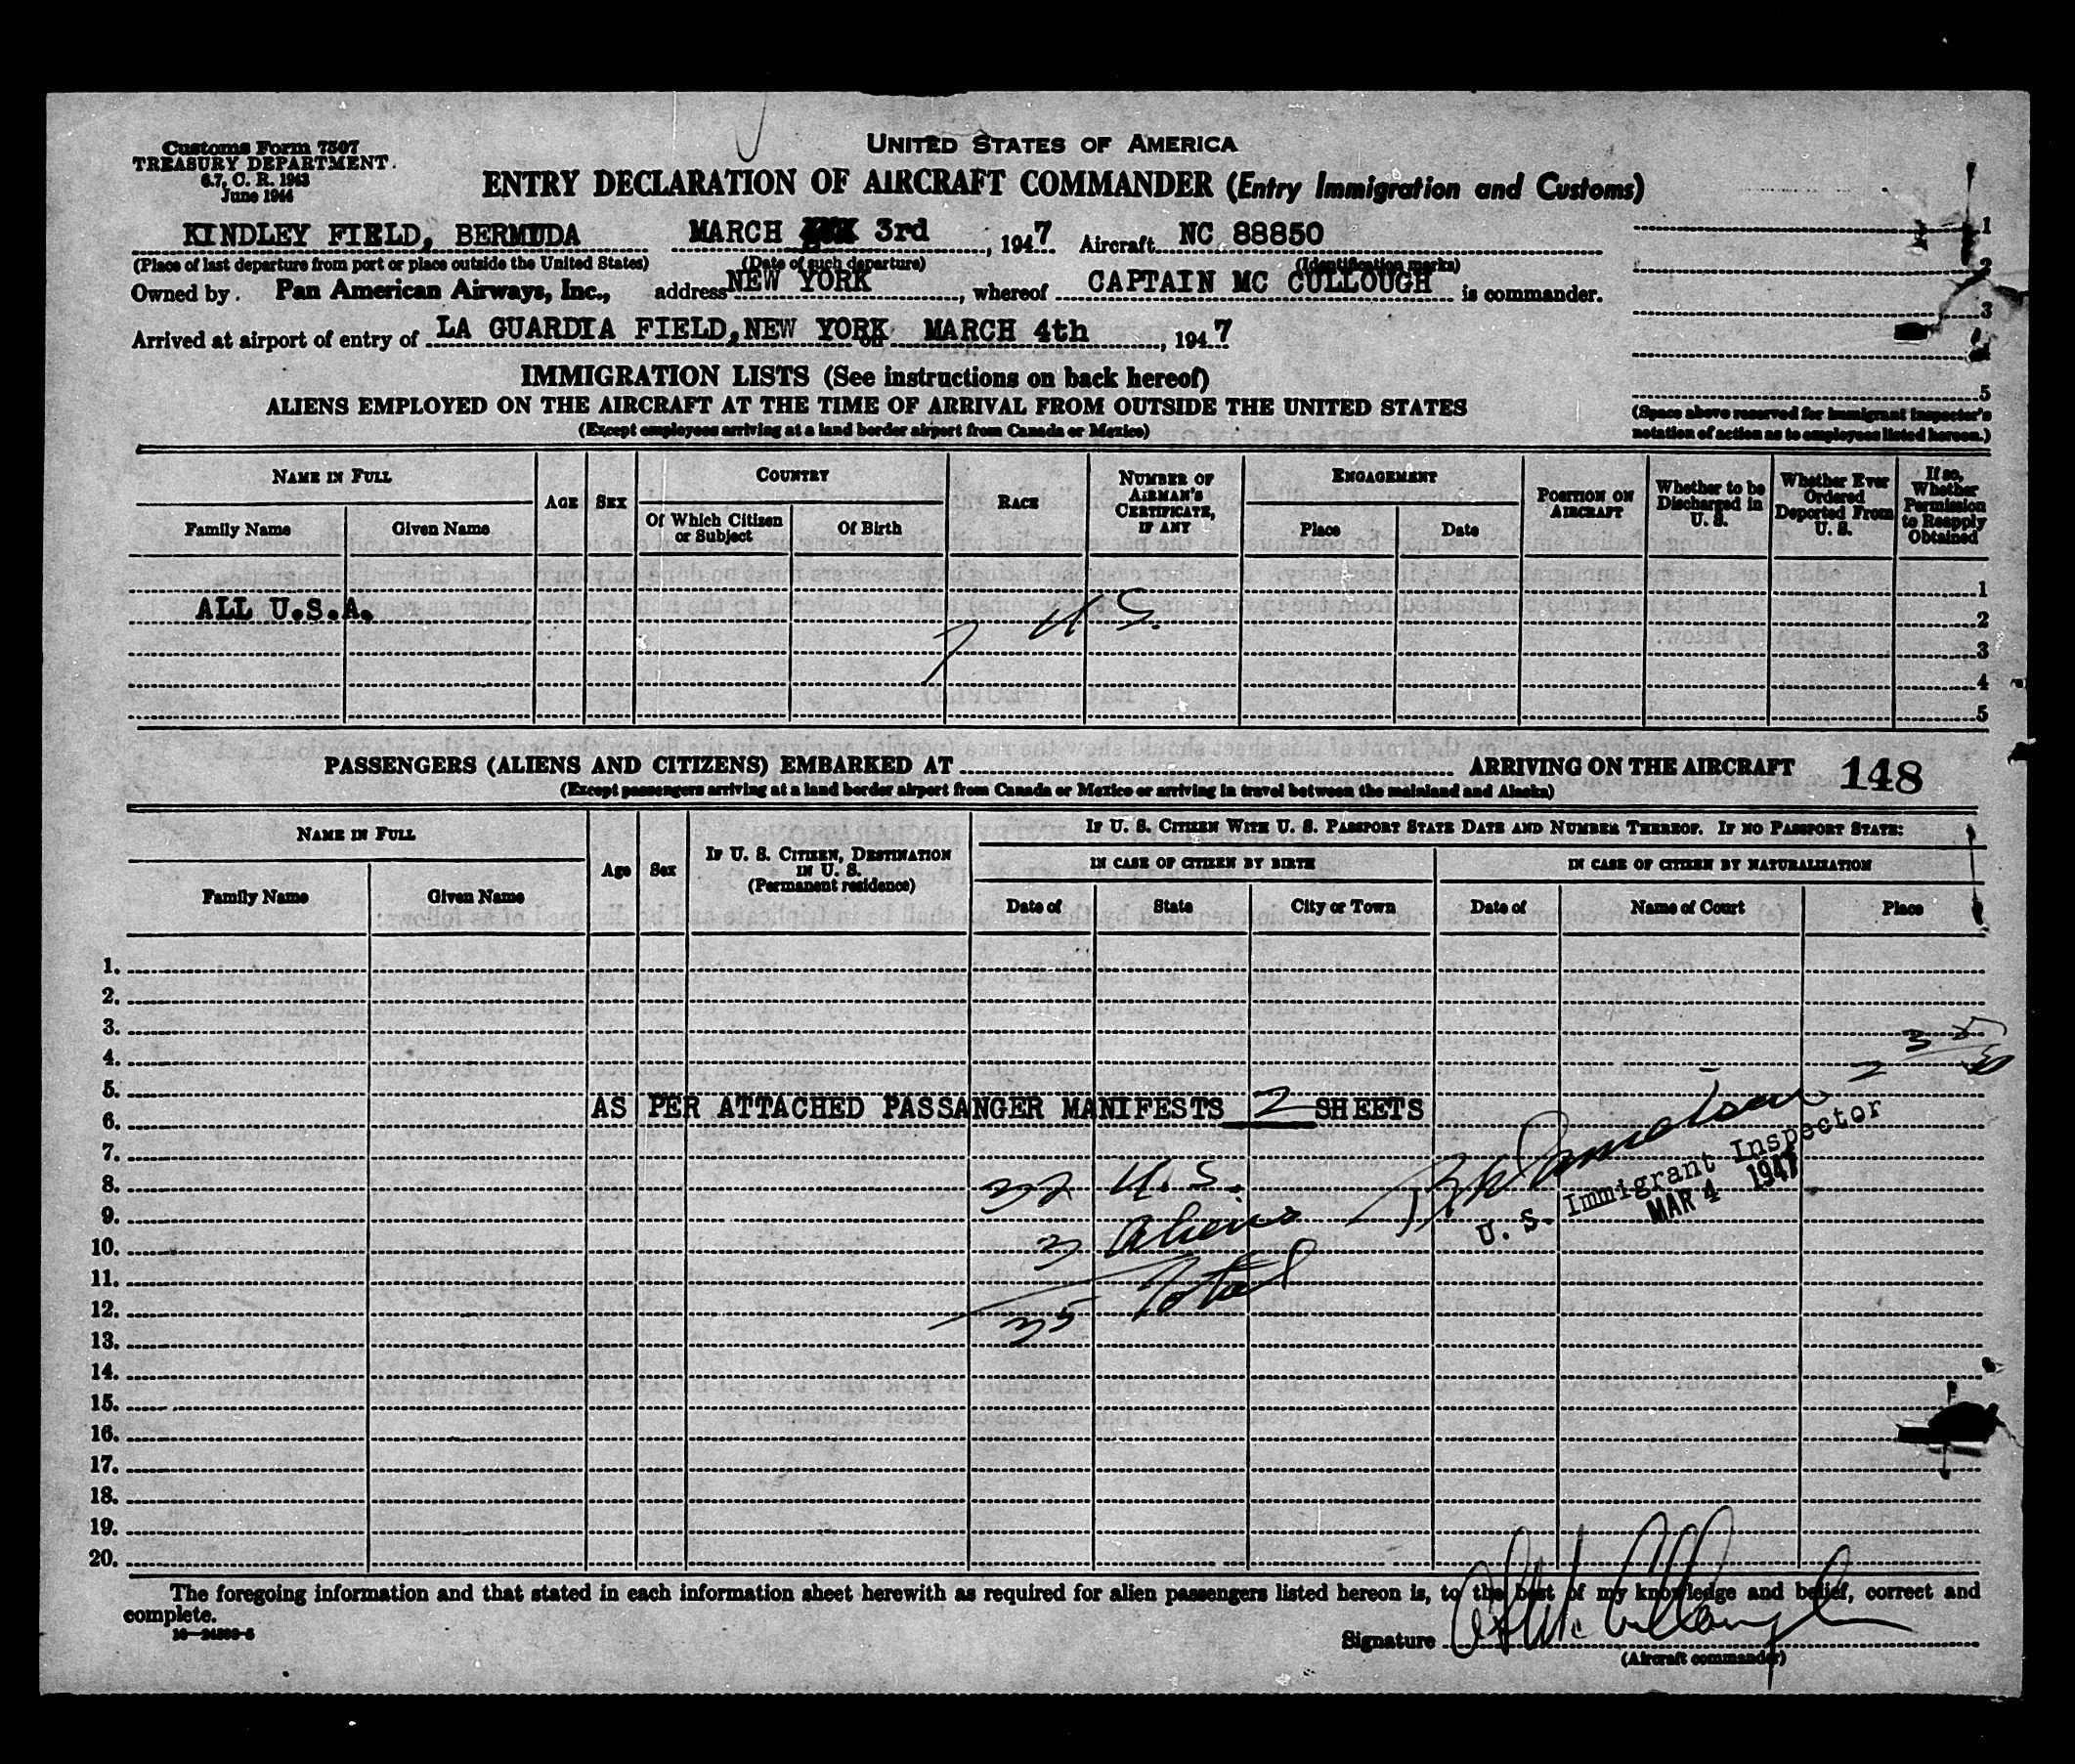 UNITED STATES OF AMERICA
Customs Form 7507
TREASURY DEPARTMENT.
6.7, C. R. 1943
June 1944
ENTRY DECLARATION OF AIRCRAFT COMMANDER (Entry Immigration and Customs)
KINDLEY FIELD, BERMUDA MARCH 3rd, 1947 Aircraft NC 88850
(Place of last departure from port or place outside the United States) (Date of such departure) (Identification marks)
Owned by. Pan American Airways, Inc., address NEW YORK, whereof CAPTAIN MC CULLOUGH is commander.
Arrived at airport of entry of LA GUARDIA FIELD, NEW YORK on MARCH 4th, 1947
1
2
3
4
5
(Space above reserved for immigrant inspector's
notation of action as to employees listed hereon.)
IMMIGRATION LISTS (See instructions on back hereof)
ALIENS EMPLOYED ON THE AIRCRAFT AT THE TIME OF ARRIVAL FROM OUTSIDE THE UNITED STATES
(Except employees arriving at a land border airport from Canada or Mexico)
NAME IN FULL
Family Name
Given Name
AGE
SEX
COUNTRY
Of Which Citizen
or Subject
Of Birth
RACE
NUMBER OF
AIRMAN'S
CERTIFICATE,
IF ANY
ENGAGEMENT
Place
Date
POSITION ON
AIRCRAFT
Whether to be
Discharged in
U. S.
Whether Ever
Ordered
Deported From
U. S.
If so,
Whether
Permission
to Reapply
Obtained
1
ALL U.S.A. 7 U S. 2
3
4
5
PASSENGERS (ALIENS AND CITIZENS) EMBARKED AT ARRIVING ON THE AIRCRAFT 148
(Except passengers arriving at a land border airport from Canada or Mexico or arriving in travel between the mainland and Alaska)
NAME IN FULL
Family Name
Given Name
Age
Sex
IF U. S. CITIZEN, DESTINATION
IN U. S.
(Permanent residence)
IF U. S. CITIZEN WITH U. S. PASSPORT STATE DATE AND NUMBER THEREOF. IF NO PASSPORT STATE:
IN CASE OF CITIZEN BY BIRTH
Date of
State
City or Town
IN CASE OF CITIZEN BY NATURALIZATION
Date of
Name of Court
Place
1.
2.
3.
4.
5.
AS PER ATTACHED PASSANGER MANIFESTS 2 SHEETS
6.
7.
8.
32 U.S.
9.
3 Aliens
10.
11.
35 Total
12.
13.
14.
15.
16.
17.
18.
19.
20.
U. S. Immigrant Inspector
MAR 4 1947
The foregoing information and that stated in each information sheet herewith as required for alien passengers listed hereon is, to the best of my knowledge and belief, correct and
complete.
16—24539-5
Signature
(Aircraft commander)